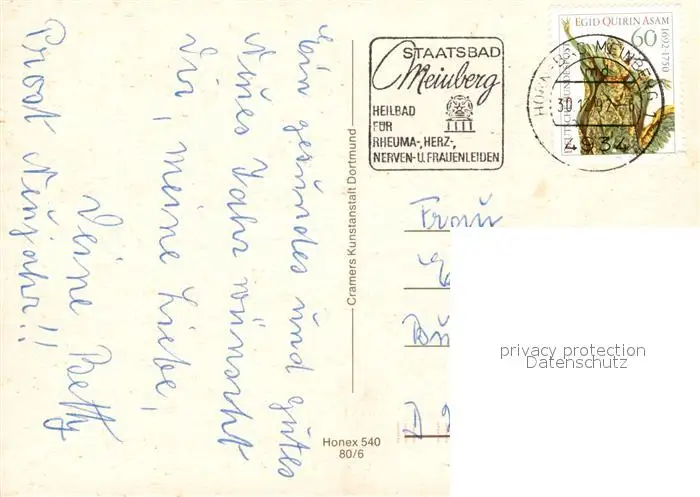 Ein gesundes und gutes
Neues Jahr wünscht
Dir, meine Liebe,
Deine Betty
Prost Neujahr!!
Cramers Kunstanstalt Dortmund
Honex 540
80/6
STAATSBAD
Meinberg
HEILBAD
FÜR
RHEUMA-, HERZ-,
NERVEN- U. FRAUENLEIDEN
EGID QUIRIN ASAM
1692-1750
60
DEUTSCHE BUNDESPOST
HORN-BAD MEINBERG 1
4934
Frau
D
privacy protection
Datenschutz